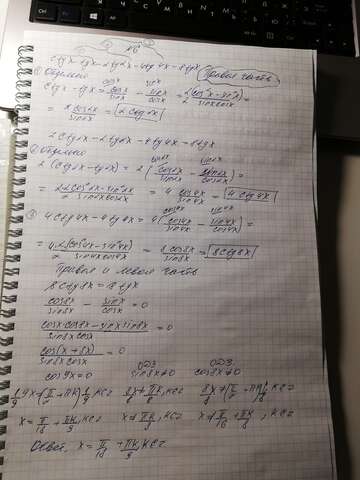 №6
ctg x - tg x - 2 tg 2x - 4 tg 4x = 8 tg x
① Отдельно Правая часть
ctg x - tg x = cos x/sin x - sin x/cos x = 2(cos²x - sin²x)/2 sin x cos x =
= 2 cos 2x/sin 2x = 2 ctg 2x
2 ctg 2x - 2 tg 2x - 4 tg 4x = 8 tg x
② Отдельно
2(ctg 2x - tg 2x) = 2(cos 2x/sin 2x - sin 2x/cos 2x) =
= 2·2 cos²2x - sin²2x/2 sin 2x cos 2x = 4 cos 4x/sin 4x = 4 ctg 4x
③ 4 ctg 4x - 4 tg 4x = 4(cos 4x/sin 4x - sin 4x/cos 4x) =
= 4·2(cos²4x - sin²4x)/2 sin 4x cos 4x = 8 cos 8x/sin 8x = 8 ctg 8x
Правая и левая часть
8 ctg 8x = 8 tg x
cos 8x/sin 8x - sin x/cos x = 0
cos x cos 8x - sin x sin 8x/sin 8x cos x = 0
cos(x + 8x)/sin 8x cos x = 0
ОДЗ ОДЗ
cos 9x = 0 sin 8x ≠ 0 cos 8x ≠ 0
x = π/18 + πk/9, k∈Z x ≠ πk/8, k∈Z x ≠ π/16 + πk/8, k∈Z
Ответ: x = π/18 + πk/9, k∈Z